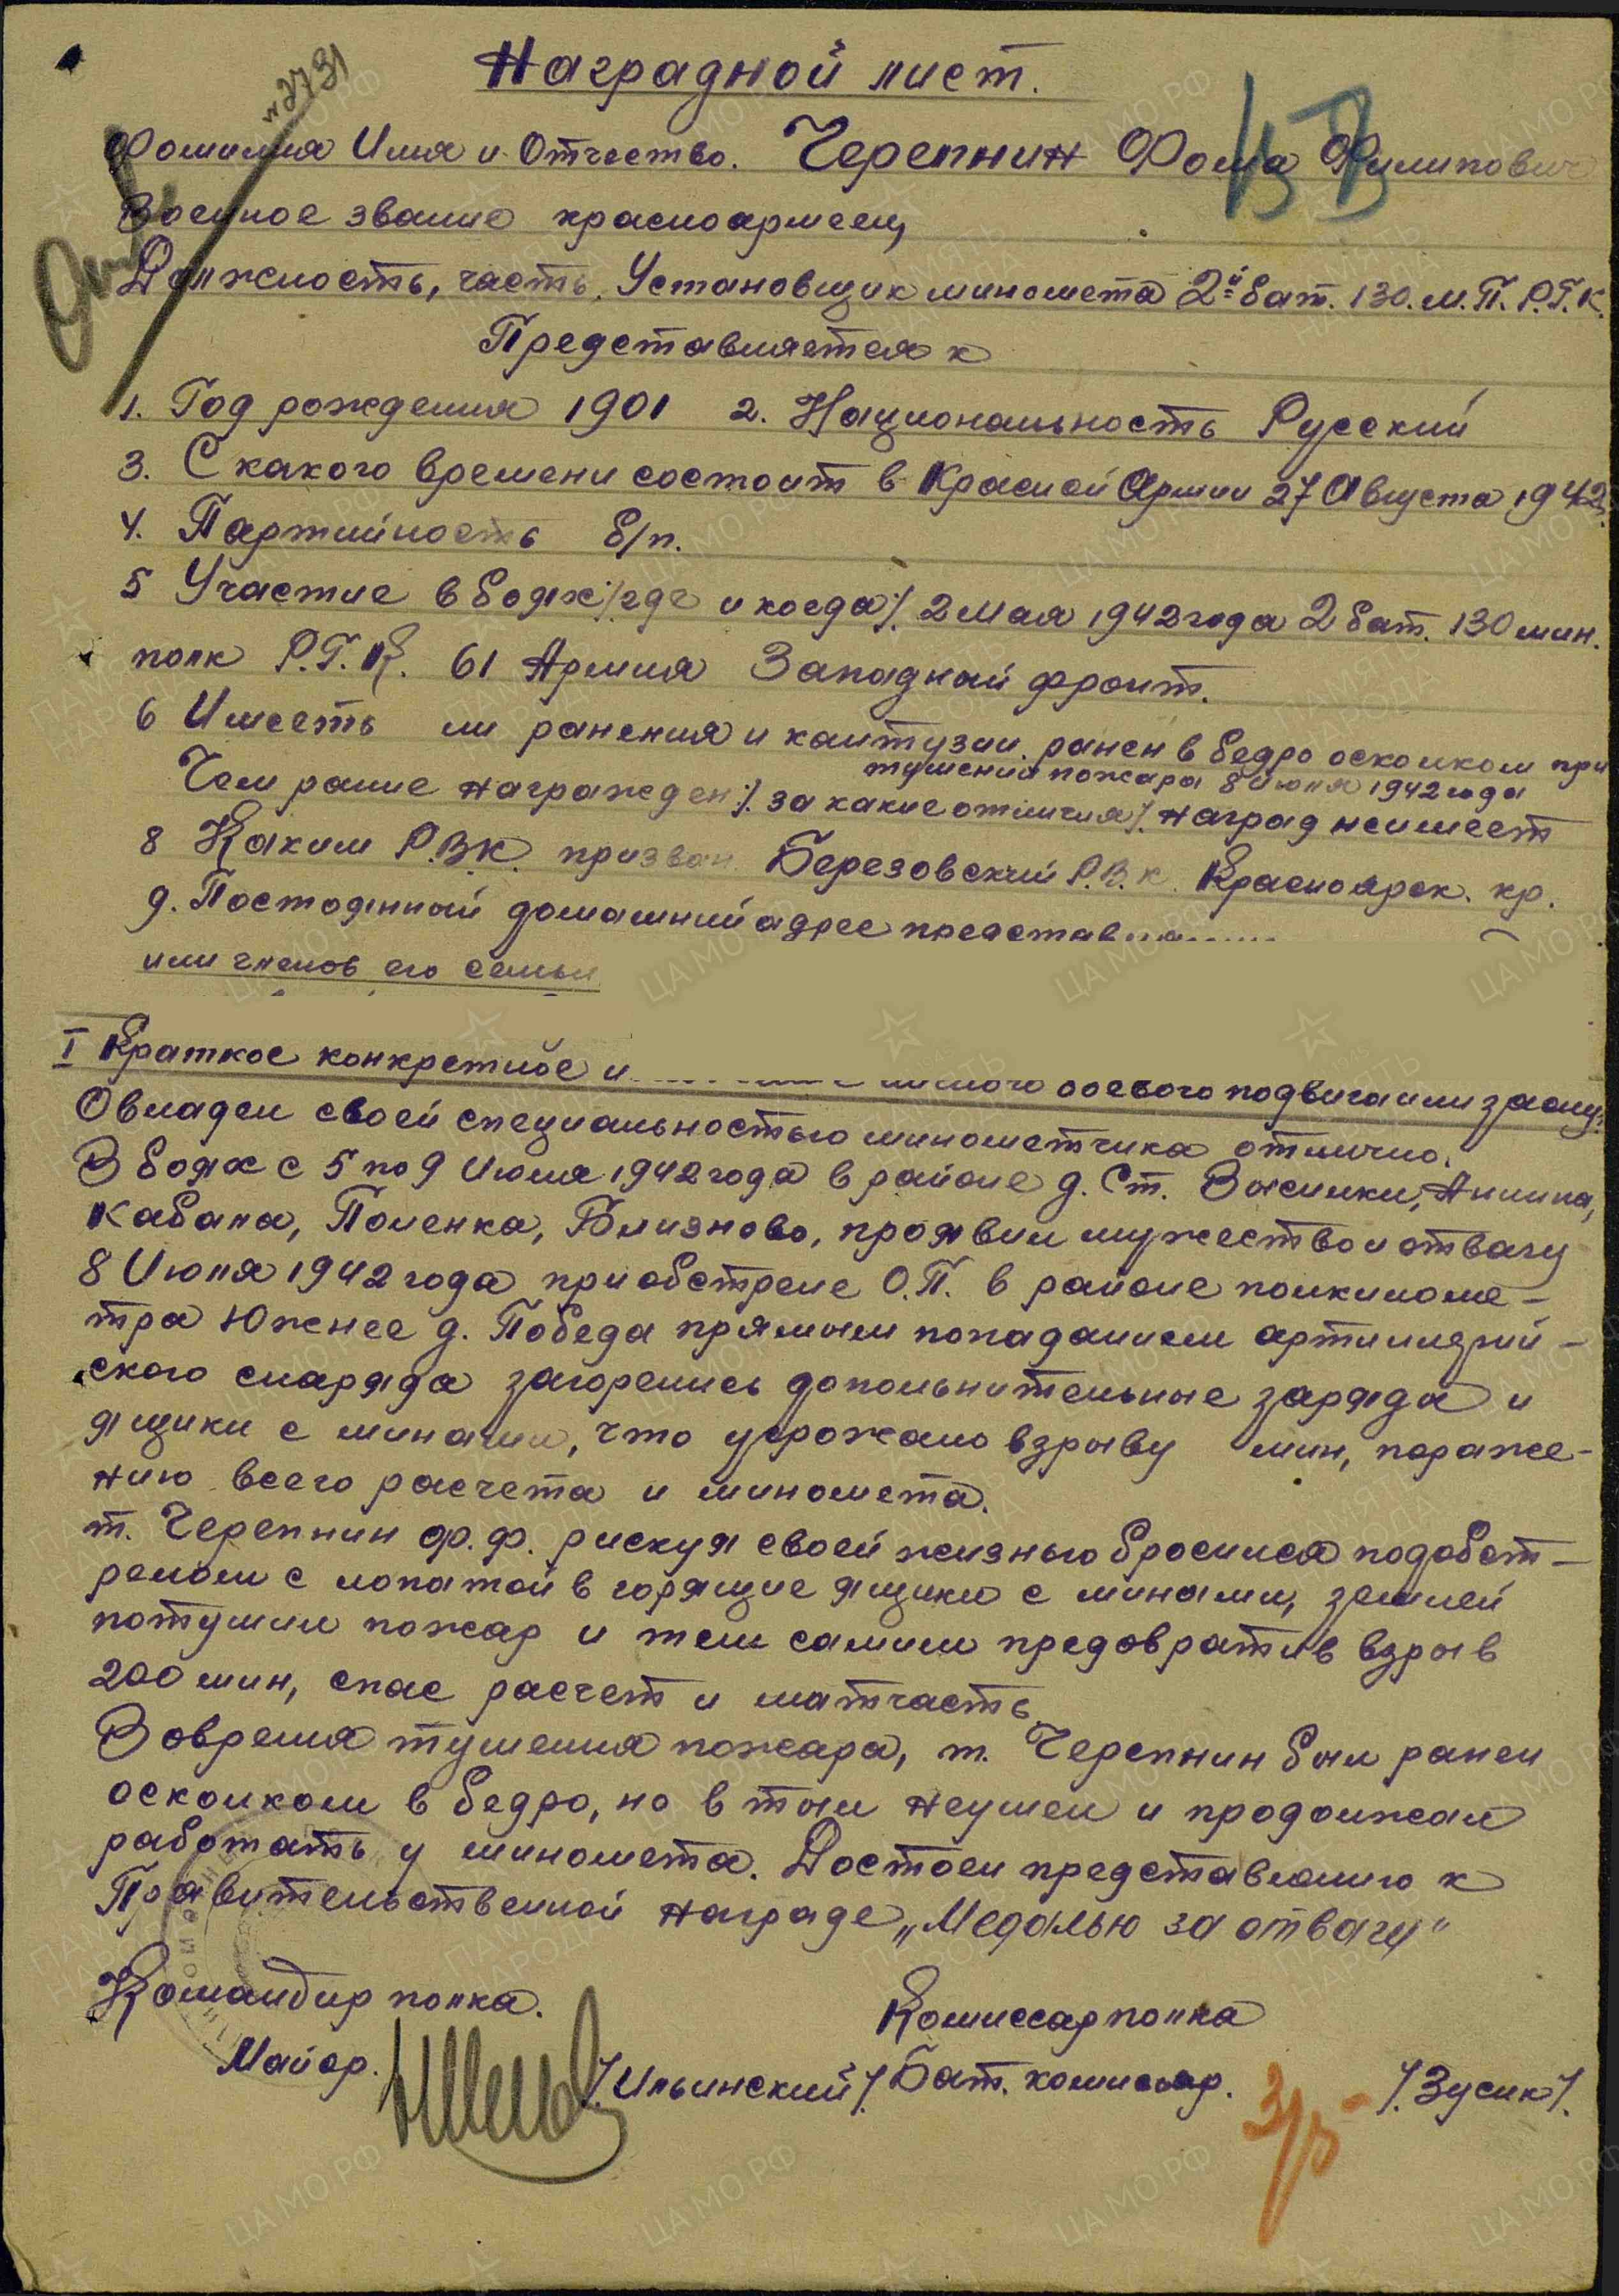 №2731
Наградной лист.
Фамилия Имя и Отчество. Черепнин Фома Филипович
Военное звание красноармеец
Должность, часть. Установщик миномета 2й бат. 130. м. П. Р.Г.К.
Представляется к
1. Год рождения 1901 2. Национальность Русский
3. С какого времени состоит в Красной Армии 27 Августа 1942.
4. Партийность б/п.
5 Участие в боях /.где и когда/. 2 Мая 1942 года 2 бат. 130 мин.
полк Р.Г.К. 61 Армия Западный фронт.
6 Имееть ли ранения и кантузии. ранен в бедро осколком при
тушении пожара 8 Июля 1942 года
Чем ранне награжден /. за какие отличия/. наград неимеет
8 Каким Р.В.К. призван Березовский Р.В.К. Красноярск. кр.
9. Постоянный домашний адрес
или членов его семьи
I Краткое конкретное личного боевого подвига или заслуг.
Овладел своей специальностью минометчика отлично.
В боях с 5 по 9 Июля 1942 года в районе д. Ст. Анина,
Кабала, Поленка, Близново, проявил мужество и отвагу
8 Июля 1942 года при обстреле О.П. в районе полкиломе-
тра Южнее д. Победа прямым попаданием артиллерий-
ского снаряда загорелись дополнительные заряда и
ящики с минами, что угрожало взрыву мин, пораже-
нию всего расчета и миномета.
т. Черепнин ф.ф. рискуя своей жизнью бросился подобст-
релом с лопатой в горящие ящики с минами, землей
потушил пожар и тем самим предовратив взрыв
200 мин, спас расчет и матчасть.
Вовремя тушения пожара, т. Черепнин был ранен
осколком в бедро, но в тыл неушел и продолжал
работать у миномета. Достоен представлению к
Правительственной награде „Медалью за отвагу“
Командир полка. Комиссар полка
Майор. /.Ильинский/. Бат. комиссар. /.Зусик/.